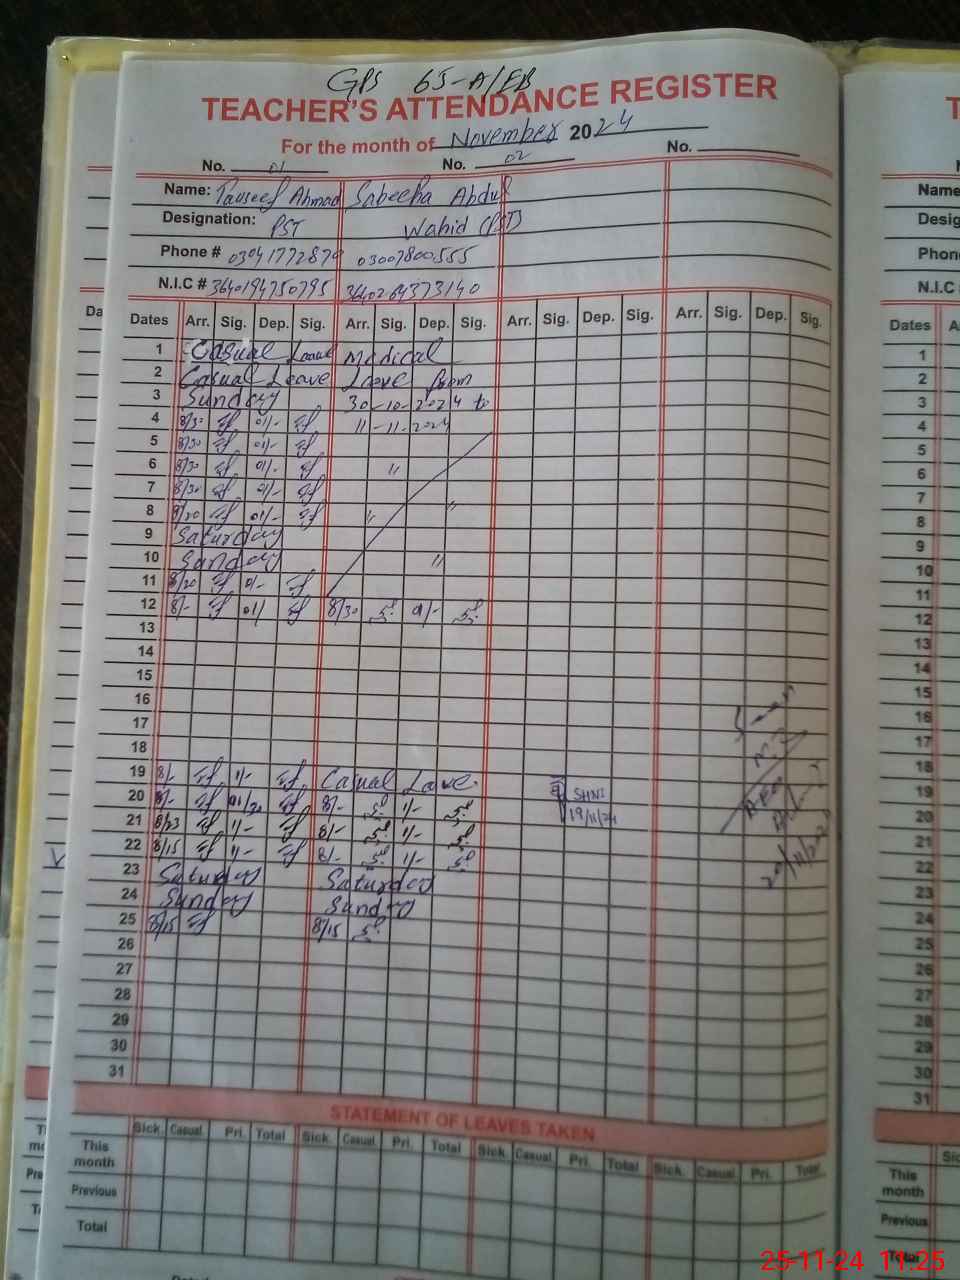 GPS 65-A/EB
TEACHER'S ATTENDANCE REGISTER
For the month of November 2024
No. 01 No. 02 No.
Name: Tauseef Ahmad Sabeeha Abdul
Designation: PST Wahid (PST)
Phone # 03007800555
N.I.C # 3640194750795 3640264373140
Dates Arr. Sig. Dep. Sig. Arr. Sig. Dep. Sig. Arr. Sig. Dep. Sig. Arr. Sig. Dep. Sig.
1 Casual Leave Medical
2 Casual Leave Leave from
3 Sunday 30-10-2024 to
4 8/30 01/- 11-11-2024
5 8/30 01/-
6 8/30 01/- "
7 8/30 01/-
8 8/20 01/- " "
9 Saturday
10 Sunday "
11 8/20 01/-
12 8/- 01/ 8/30 01/-
13
14
15
16
17
18
19 8/- 1/- Casual Leave
20 8/- 01/30 8/- 1/- SHNI
21 8/23 1/- 8/- 1/- 19/11/24
22 8/15 1/- 8/- 1/-
23 Saturday Saturday
24 Sunday Sunday
25 8/15 8/15
26
27
28
29
30
31
AEO
STATEMENT OF LEAVES TAKEN
Sick. Casual Pri. Total Sick. Casual Pri. Total Sick. Casual Pri. Total Sick. Casual Pri. Total
This month
Previous
Total
Name
Desig
Phone
N.I.C
Dates
1
2
3
4
5
6
7
8
9
10
11
12
13
14
15
16
17
18
19
20
21
22
23
24
25
26
27
28
29
30
31
This month
Previous
Total
25-11-24 11:25